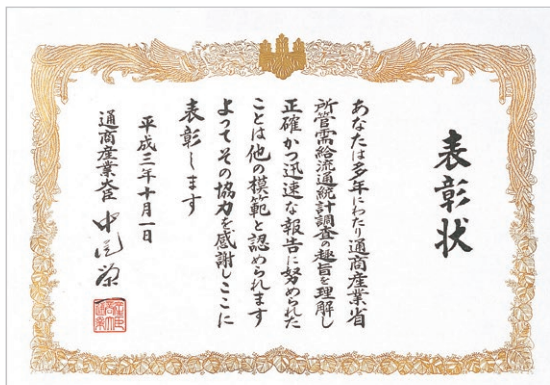 表彰状
あなたは多年にわたり通商産業省
所管需給流通統計調査の趣旨を理解し
正確かつ迅速な報告に努められた
ことは他の模範と認められます
よってその協力を感謝しここに
表彰します
平成三年十月一日
通商産業大臣 中尾栄